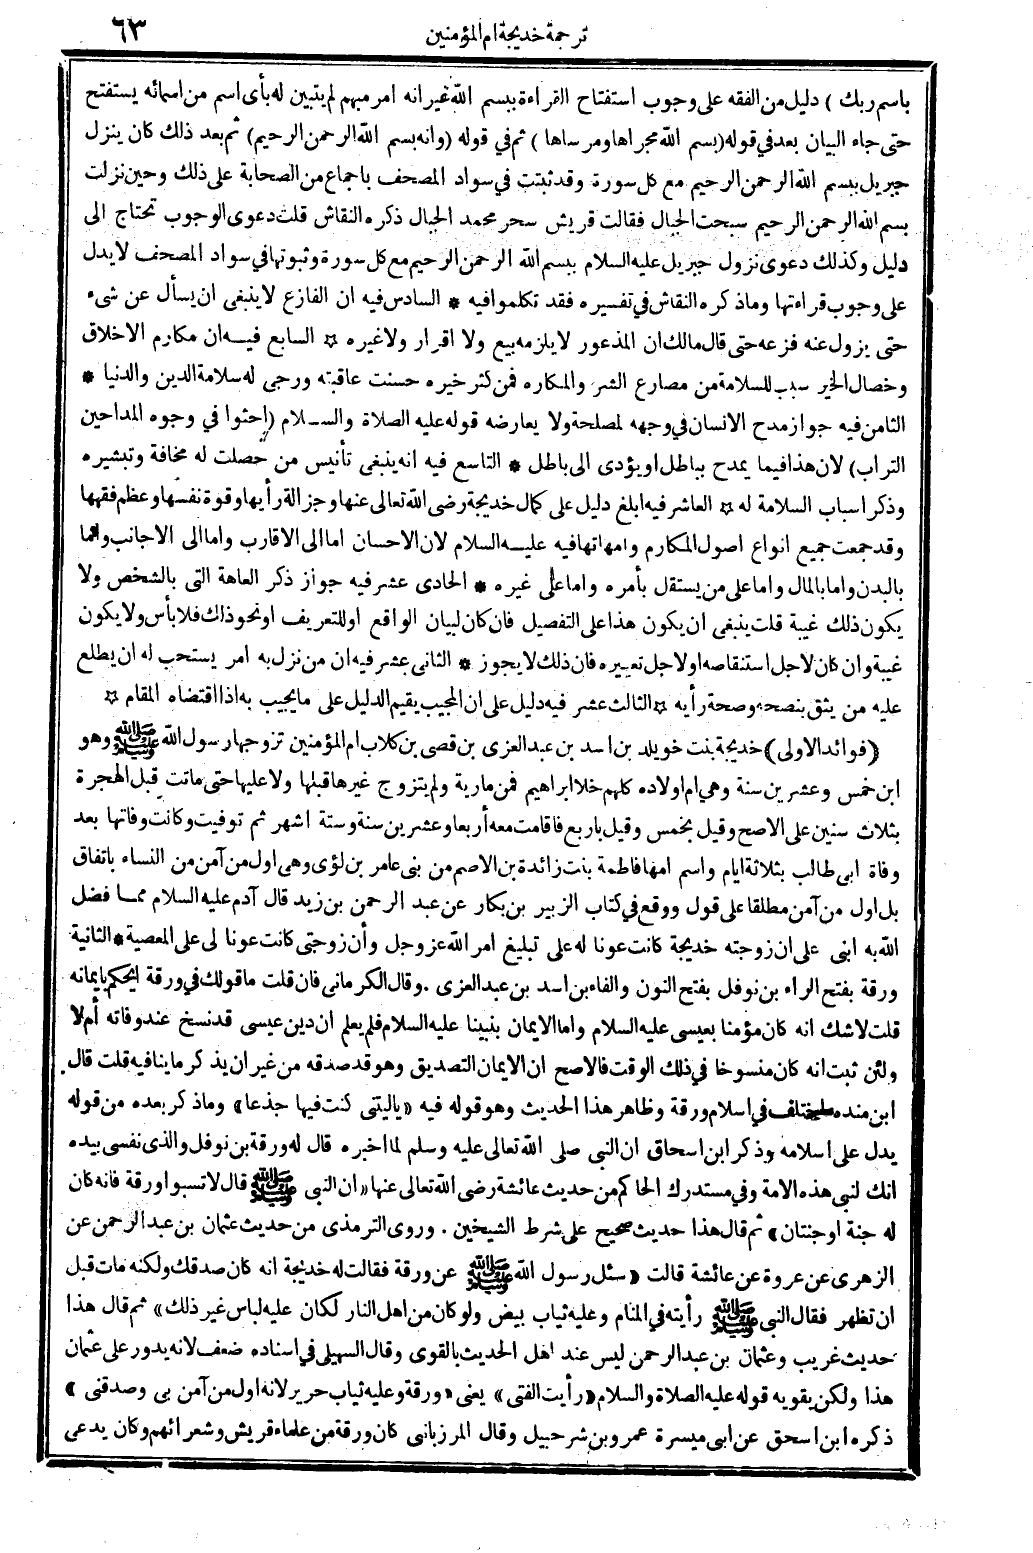 ترجمة خديجة ام المؤمنين
٦٣
باسم ربك ) دليل من الفقه على وجوب استفتاح القراءة ببسم الله غير انه امر مبهم لم يتبين له بأى اسم من اسمائه يستفتح
حتى جاء البيان بعد فى قوله (بسم الله مجراها ومرساها ) ثم فى قوله (وانه بسم الله الرحمن الرحيم) ثم بعد ذلك كان ينزل
جبريل ببسم الله الرحمن الرحيم مع كل سورة وقد ثبتت فى سواد المصحف باجماع من الصحابة على ذلك وحين نزلت
بسم الله الرحمن الرحيم سبحت الجبال فقالت قريش سحر محمد الجبال ذكره النقاش قلت دعوى الوجوب تحتاج الى
دليل وكذلك دعوى نزول جبريل عليه السلام ببسم الله الرحمن الرحيم مع كل سورة وثبوتها فى سواد المصحف لا يدل
على وجوب قراءتها وما ذكره النقاش فى تفسيره فقد تكلموا فيه * السادس فيه ان الفازع لا ينبغى ان يسأل عن شىء
حتى يزول عنه فزعه حتى قال مالك ان المذعور لا يلزمه بيع ولا اقرار ولا غيره * السابع فيه ان مكارم الاخلاق
وخصال الخير سبب للسلامة من مصارع الشر والمكاره فمن كثر خيره حسنت عاقبته ورجى له سلامة الدين والدنيا *
الثامن فيه جواز مدح الانسان فى وجهه لمصلحة ولا يعارضه قوله عليه الصلاة والسلام (احثوا في وجوه المداحين
التراب) لان هذا فيما يمدح بباطل او يؤدى الى باطل * التاسع فيه انه ينبغى تأنيس من حصلت له مخافة وتبشيره
وذكر اسباب السلامة له * العاشر فيه ابلغ دليل على كمال خديجة رضى الله تعالى عنها وجزالة رأيها وقوة نفسها وعظم فقهها
وقد جمعت جميع انواع اصول المكارم وامهاتها فيه عليه السلام لان الاحسان اما الى الاقارب واما الى الاجانب واما
بالبدن واما بالمال واما على من يستقل بأمره واما على غيره * الحادى عشر فيه جواز ذكر العاهة التى بالشخص ولا
يكون ذلك غيبة قلت ينبغى ان يكون هذا على التفصيل فان كان لبيان الواقع او للتعريف او نحو ذاك فلا بأس ولا يكون
غيبة وان كان لاجل استنقاصه او لاجل تعييره فان ذلك لا يجوز * الثانى عشر فيه ان من نزل به امر يستحب له ان يطلع
عليه من يثق بنصحه وصحة رأيه * الثالث عشر فيه دليل على ان المجيب يقيم الدليل على ما يجيب به اذا اقتضاه المقام *
(فوائد الاولى) خديجة بنت خويلد بن اسد بن عبد العزى بن قصى بن كلاب ام المؤمنين تزوجها رسول الله ﷺ وهو
ابن خمس وعشرين سنة وهي ام اولاده كلهم خلا ابراهيم فمن مارية ولم يتزوج غيرها قبلها ولا عليها حتى ماتت قبل الهجرة
بثلاث سنين على الاصح وقيل بخمس وقيل باربع فاقامت معه أربعا وعشرين سنة وستة اشهر ثم توفيت وكانت وفاتها بعد
وفاة ابى طالب بثلاثة ايام واسم امها فاطمة بنت زائدة بن الاصم من بنى عامر بن لؤى وهى اول من آمن من النساء باتفاق
بل اول من آمن مطلقا على قول ووقع فى كتاب الزبير بن بكار عن عبد الرحمن بن زيد قال آدم عليه السلام مما فضل
الله به ابنى على ان زوجته خديجة كانت عونا له على تبليغ امر الله عز وجل وأن زوجتى كانت عونا لى على المعصية * الثانية
ورقة بفتح الراء بن نوفل بفتح النون والفاء بن اسد بن عبد العزى . وقال الكرمانى فان قلت ما قولك فى ورقة ايحكم بايمانه
قلت لا شك انه كان مؤمنا بعيسى عليه السلام واما الايمان بنبينا عليه السلام فلم يعلم ان دين عيسى قد نسخ عند وفاته أم لا
ولئن ثبت انه كان منسوخا فى ذلك الوقت فالاصح ان الايمان التصديق وهو قد صدقه من غير ان يذكر ما ينافيه قلت قال
ابن منده اختلف فى اسلام ورقة وظاهر هذا الحديث وهو قوله فيه «ياليتنى كنت فيها جذعا» وما ذكر بعده من قوله
يدل على اسلامه وذكر ابن اسحاق ان النبى صلى الله تعالى عليه وسلم لما اخبره قال له ورقة بن نوفل والذى نفسى بيده
انك لنبى هذه الامة وفى مستدرك الحاكم من حديث عائشة رضى الله تعالى عنها «ان النبى ﷺ قال لا تسبوا ورقة فانه كان
له جنة او جنتان» ثم قال هذا حديث صحيح على شرط الشيخين . وروى الترمذى من حديث عثمان بن عبد الرحمن عن
الزهرى عن عروة عن عائشة قالت «سئل رسول الله ﷺ عن ورقة فقالت له خديجة انه كان صدقك ولكنه مات قبل
ان تظهر فقال النبى ﷺ رأيته فى المنام وعليه ثياب بيض ولو كان من اهل النار لكان عليه لباس غير ذلك» ثم قال هذا
حديث غريب وعثمان بن عبد الرحمن ليس عند اهل الحديث بالقوى وقال السهيلى فى اسناده ضعف لانه يدور على عثمان
هذا ولكن يقويه قوله عليه الصلاة والسلام «رأيت الفتى» يعنى «ورقة وعليه ثياب حرير لانه اول من آمن بى وصدقنى»
ذكره ابن اسحق عن ابى ميسرة عمرو بن شرحبيل وقال المرزبانى كان ورقة من علماء قريش وشعرائهم وكان يدعى